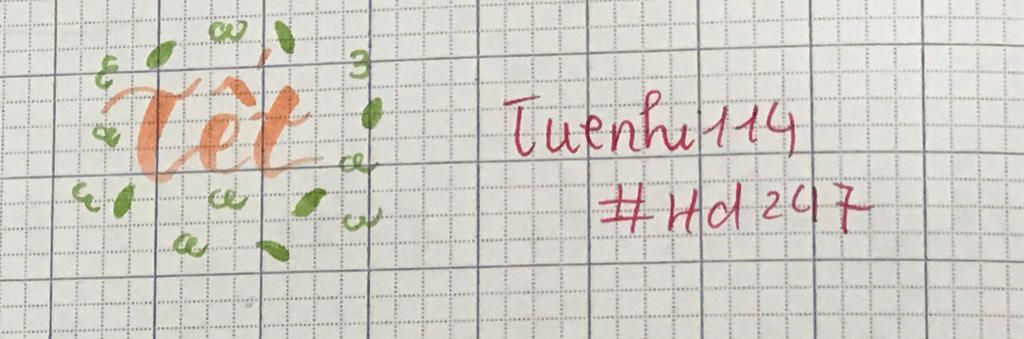 Tết
Tuenhi114
#Hd247